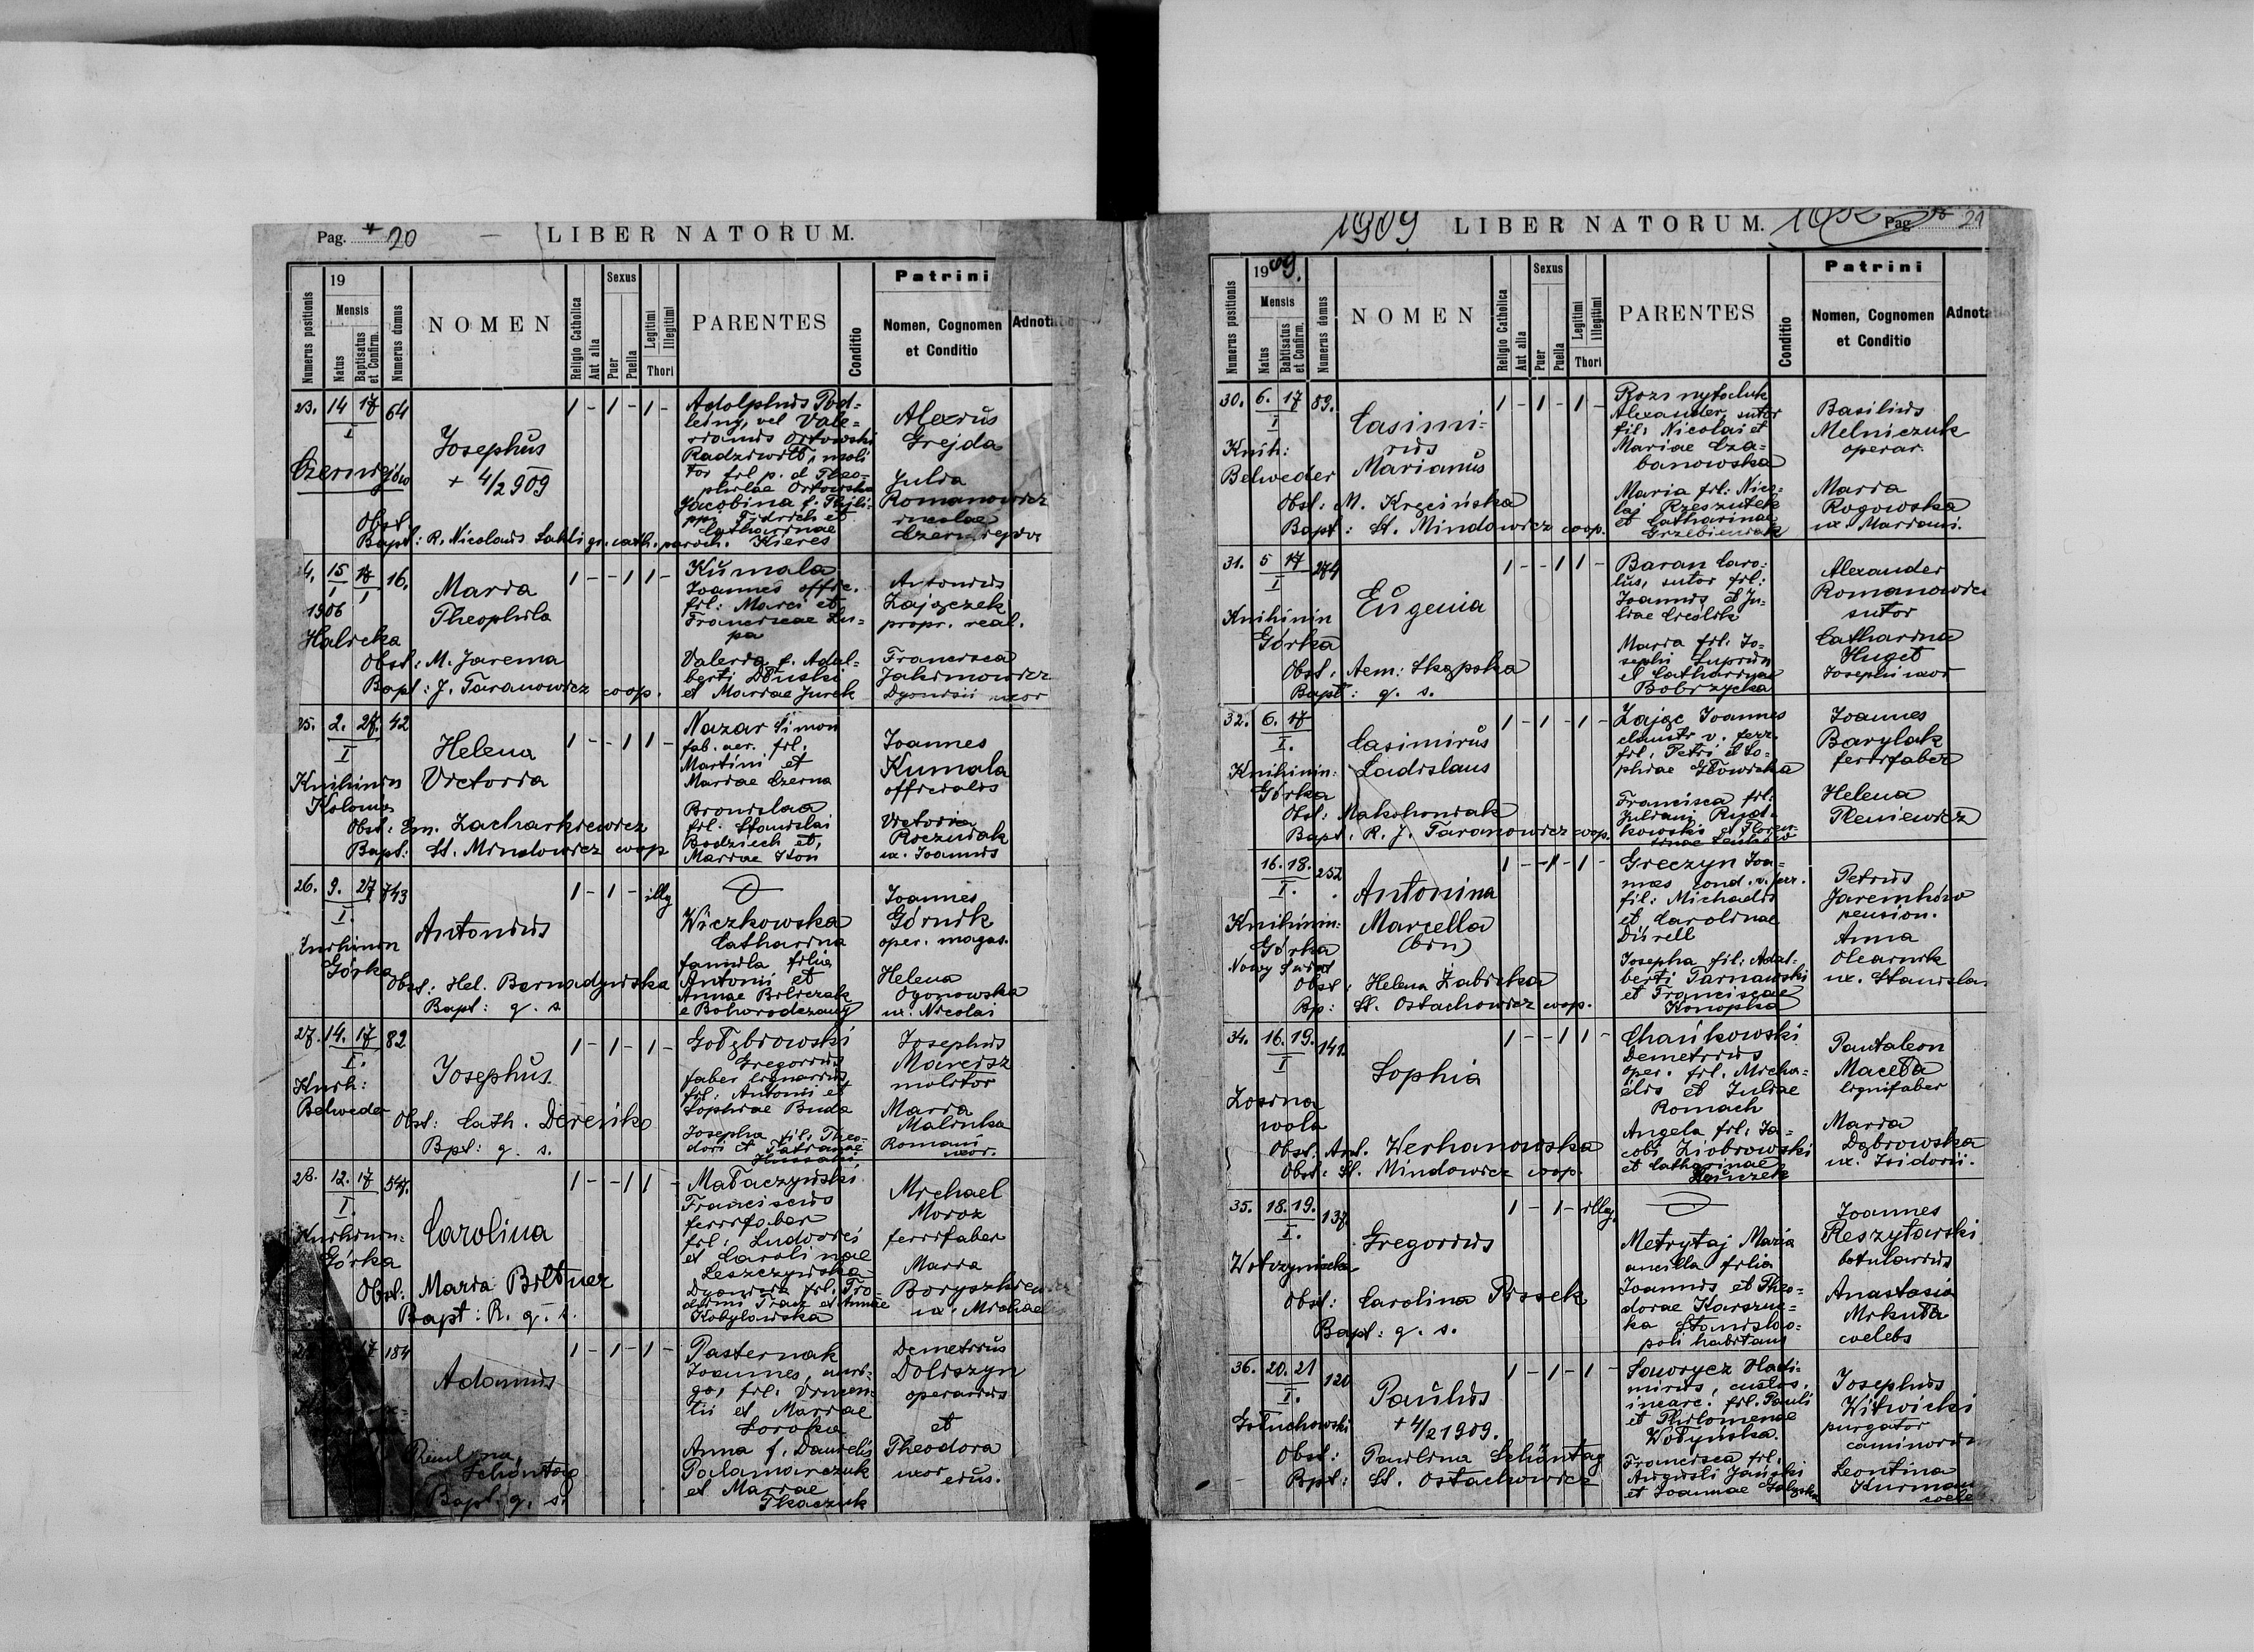 Pag. 20
LIBER NATORUM.
Numerus positionis
19
Mensis
Natus
Baptisatus et Confirm.
Numerus domus
NOMEN
Religio Catholica
Aut alia
Sexus
Puer
Puella
Legitimi
Illegitimi
Thori
PARENTES
Conditio
Patrini
Nomen, Cognomen
et Conditio
23. 14 17 64
I
Josephus
+ 4/2 909
Obst:
Bapt: R. Nicolaus gr. cath. paroch.
1 - 1 - 1 -
Adolphus Pod-
leśny, vel Vale-
rianus Ortowski
Radziwiłł, moli
tor fil p. d. Theo-
philae Ortowska
Jacobina f. Phili-
ppi Fidrich et
Catharinae
Kieres
Alexius
Grejda
Julia
Romanowicz
incolae
4. 15 16.
I
1906
Halicka
Maria
Theophila
Obst: M. Jarema
Bapt: J. Taranowicz coop.
1 - - 1 1 -
Kumala
Joannes offic.
fil: Marci et
Franciscae Lu-
pa
Valeria f. Adal-
berti Dłuski
et Mariae Jurek
Antonius
Zajączek
propr. real.
Francisca
Jakimowicz
Dyonisii uxor
25. 2. 27. 42
I
Knihinin
Kolonia
Helena
Victoria
Obst: Em. Zacharkiewicz
Bapt: St. Mindowicz coop
1 - - 1 1 -
Nazar Simon
fab. aer. fil.
Martini et
Mariae Czerna
Bronislaa
fil. Stanislai
Bodziech et
Mariae Ston
Joannes
Kumala
officialis
Victoria
Roczniak
ux. Joannis
26. 9. 27 743
I.
Knihinin
Górka
Antonius
Obst: Hel. Bernadyńska
Bapt: q. s.
1 - 1 - illg
Wiczkowska
Catharina
famila filia
Antonii et
Annae Biliczak
e Bohorodczany
Joannes
Górnik
oper. magas.
Helena
Ogonowska
ux. Nicolai
27. 14. 17 82
I.
Knih:
Belweder
Josephus
Obst: Cath. Dereńko
Bpt: q. s.
1 - 1 - 1 -
Gołębiowski
Gregorius
faber lignarius
fil: Antonii et
Sophiae Buda
Josepha fil: Theo-
dori et Tatianae
Hussaki
Josephus
Marcisz
molitor
Maria
Malinka
Romani
uxor.
28. 12. 17 54.
I.
Knihinin-
Górka
Carolina
Obst: Maria Biltner
Bapt: R. q. s.
1 - - 1 1 -
Małaczyński
Franciscus
ferrifaber
fil: Ludovici
et Carolinae
Leszczyńska
Kobylowska
Michael
Moroz
ferrifaber
Maria
ux. Michaelis
17 184
Adamus
Schöntag
Bapt. q. s.
1 - 1 - 1 -
Pasternak
Joannes, auri-
ga, fil.
et Mariae
Soroka
Anna f. Danielis
Palamarczuk
et Mariae
Tkaczuk
Demetrius
Doliszyn
operarius
et
Theodora
uxor eius.
1909
LIBER NATORUM.
Pag. 21
Numerus positionis
1909.
Mensis
Natus
Babtisatus et Confirm.
Numerus domus
NOMEN
Religio Catholica
Aut alia
Sexus
Puer
Puella
Legitimi
Illegitimi
Thori
PARENTES
Conditio
Patrini
Nomen, Cognomen
et Conditio
30. 6. 17 89.
I
Knih:
Belweder
Casimi-
rus
Marianus
Obst: M. Kręcińska
Bapt: St. Mindowicz coop.
1 - 1 - 1 -
Alexander, sutor
fil: Nicolai et
Mariae Cza-
banowska
Maria fil: Nico-
lai Rzeszutek
et Catharinae
Grzebieniak
Basilius
Melniczuk
operar.
Maria
Rogowska
ux. Mariani.
31. 5 17 274
I
Knihinin
Górka
Eugenia
Obst. Aem: Skąpska
Bapt: q. s.
1 - - 1 1 -
Baran Caro-
lus, sutor fil:
Joannis et Ju-
liae Cieślik
Maria fil. Jo-
sephi Suprun
et Catharinae
Bobrzycka
Alexander
sutor
Catharina
Huget
Josephi uxor
32. 6. 17
I.
Knihinin-
Górka
Casimirus
Ladislaus
Obst: Makohoniak
Bapt: R. J. Taranowicz coop.
1 - 1 - 1 -
Zając Joannes
claustr v. ferr.
fil. Petri et So-
phiae Głowicka
Francisca fil:
Juliani Rud-
kowski et Floren-
tinae
Joannes
Barylak
ferrifaber
Helena
Reniewicz
16. 18. 252
I.
Knihinin-
Górka
Nowy Świat
Antonina
Marcella
(bin)
Obst: Helena Żabicka
Bp: St. Ostachowicz coop.
1 - - 1 - 1 -
Greczyn Joa-
nnes cond. v. ferr.
fil: Michaelis
et Carolinae
Dürell
Josepha fil: Adal-
berti Tarnawski
et Franciscae
Konopka
Petrus
Jaremków
pension.
Anna
Olearnik
ux. Stanisla
34. 16. 19. 141.
I
Zosina
wola
Sophia
Obst. Ant. Werhanowska
Obst: St. Mindowicz coop.
1 - - 1 1 -
Chańkowski
Demetrius
oper. fil. Micha-
elis et Juliae
Romach
Angela fil: Ja-
cobi Ziobrowski
et Catharinae
Pantaleon
Maceła
lignifaber
Maria
Dąbrowska
ux. Isidorii.
35. 18. 19. 137
I.
Gregorius
Obst: Carolina Pissek
Bapt: q. s.
1 - 1 - illeg.
Metrytaj Maria
ancilla filia
Joannis et Theo-
dorae Karszne-
ka Stanislao-
poli habitans
Joannes
Reszytarski
botularius
Anastasia
Mikuła
coelebs
36. 20. 21 120
I.
Gołuchowski
Paulus
+ 4/2 1909.
Obst: Paulina Schöntag
Bpt: St. Ostachowicz
1 - 1 - 1 -
Saworycz Hladi-
mirus, custos
incarc. fil. Pauli
et Philomenae
Wołyńska.
Francisca fil.
Augusti Jański
et Joannae
Josephus
Witwicki
purgator
caminorum
Leontina
Kurman